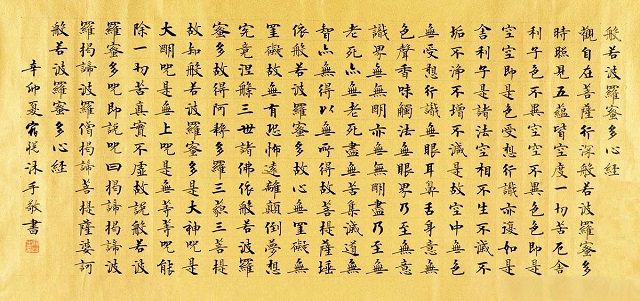 般若波羅蜜多心経
觀自在菩薩行深般若波羅蜜多
時照見五蘊皆空度一切苦厄舍
利子色不異空空不異色色即是
空空即是色受想行識亦復如是
舍利子是諸法空相不生不滅不
垢不净不增不減是故空中無色
無受想行識無眼耳鼻舌身意無
色聲香味觸法無眼界乃至無意
識界無無明亦無無明盡乃至無
老死亦無老死盡無苦集滅道無
智亦無得以無所得故菩提薩埵
依般若波羅蜜多故心無罣礙無
罣礙故無有恐怖遠離顛倒夢想
究竟涅槃三世諸佛依般若波羅
蜜多故得阿耨多羅三藐三菩提
故知般若波羅蜜多是大神咒是
大明咒是無上咒是無等等咒能
除一切苦真實不虛故說般若波
羅蜜多咒即說咒曰揭諦揭諦波
羅揭諦波羅僧揭諦菩提薩婆訶
般若波羅蜜多心経
辛卯夏悦沐手敬書